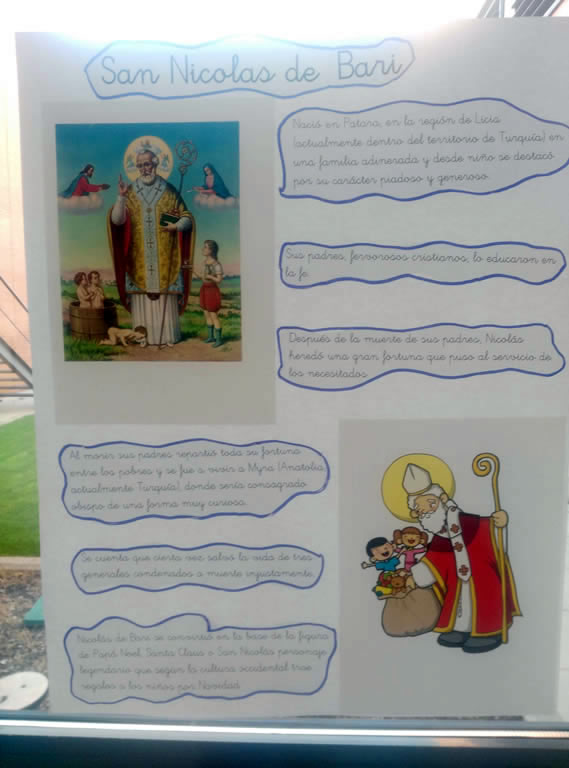 San Nicolas de Bari
Nació en Patara, en la región de Licia
(actualmente dentro del territorio de Turquía) en
una familia adinerada y desde niño se destacó
por su carácter piadoso y generoso.
Sus padres, fervorosos cristianos, lo educaron en
la fe.
Después de la muerte de sus padres, Nicolás
heredó una gran fortuna que puso al servicio de
los necesitados.
Al morir sus padres repartió toda su fortuna
entre los pobres y se fue a vivir a Myra (Anatolia,
actualmente Turquía), donde sería consagrado
obispo de una forma muy curiosa.
Se cuenta que cierta vez salvó la vida de tres
generales condenados a muerte injustamente.
Nicolás de Bari se convirtió en la base de la figura
de Papá Noel, Santa Claus o San Nicolás personaje
legendario que según la cultura occidental trae
regalos a los niños por Navidad